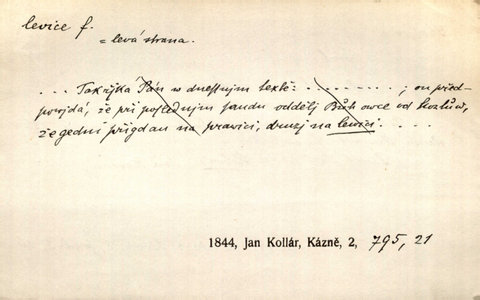 levice f.
= levá strana.
... Tak rjká Pán w dnešnjm textě: ........., on před-
powjdá, že při poslednjm saudu oddělj Bůh owce od kozlůw,
že gedni přigdau na prawici, druzj na lewici. ...
1844, Jan Kollár, Kázně, 2, 795, 21